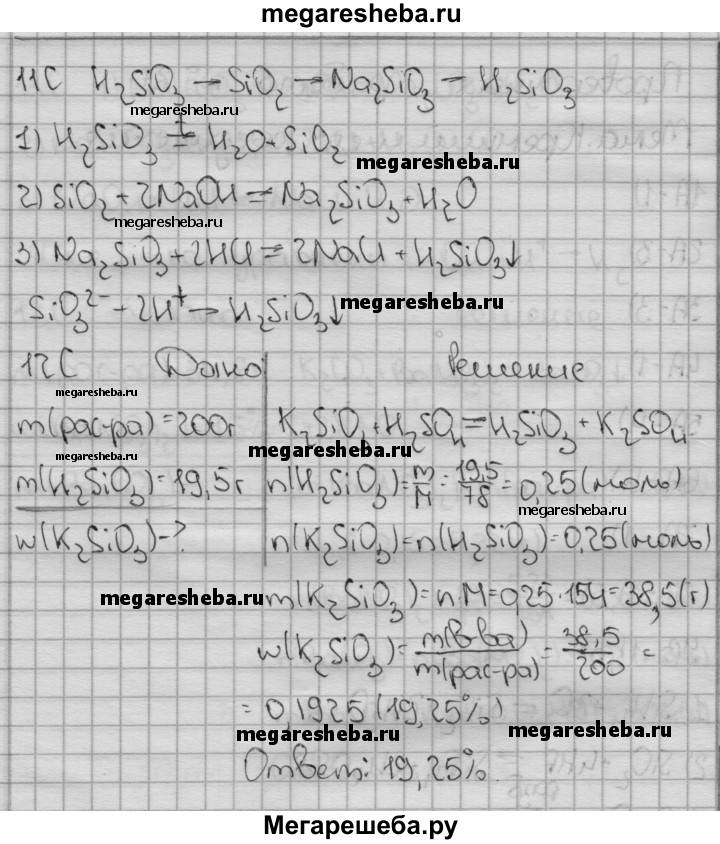 megaresheba.ru
11C H₂SiO₃ → SiO₂ → Na₂SiO₃ → H₂SiO₃
megaresheba.ru
1) H₂SiO₃ =t H₂O + SiO₂
megaresheba.ru
2) SiO₂ + 2NaOH = Na₂SiO₃ + H₂O
megaresheba.ru
3) Na₂SiO₃ + 2HCl = 2NaCl + H₂SiO₃↓
SiO₃²⁻ + 2H⁺ → H₂SiO₃↓
megaresheba.ru
12C Дано Решение
megaresheba.ru
m(рас-ра) = 200г K₂SiO₃ + H₂SO₄ = H₂SiO₃ + K₂SO₄
megaresheba.ru
megaresheba.ru
m(H₂SiO₃) = 19,5г n(H₂SiO₃) = m/M = 19,5/78 = 0,25 (моль)
megaresheba.ru
w(K₂SiO₃) - ? n(K₂SiO₃) = n(H₂SiO₃) = 0,25 (моль)
megaresheba.ru
m(K₂SiO₃) = n·M = 0,25·154 = 38,5 (г)
w(K₂SiO₃) = m(в-ва)/m(рас-ра) = 38,5/200 =
= 0,1925 (19,25%)
megaresheba.ru
megaresheba.ru
Ответ: 19,25%.
Мегарешеба.ру